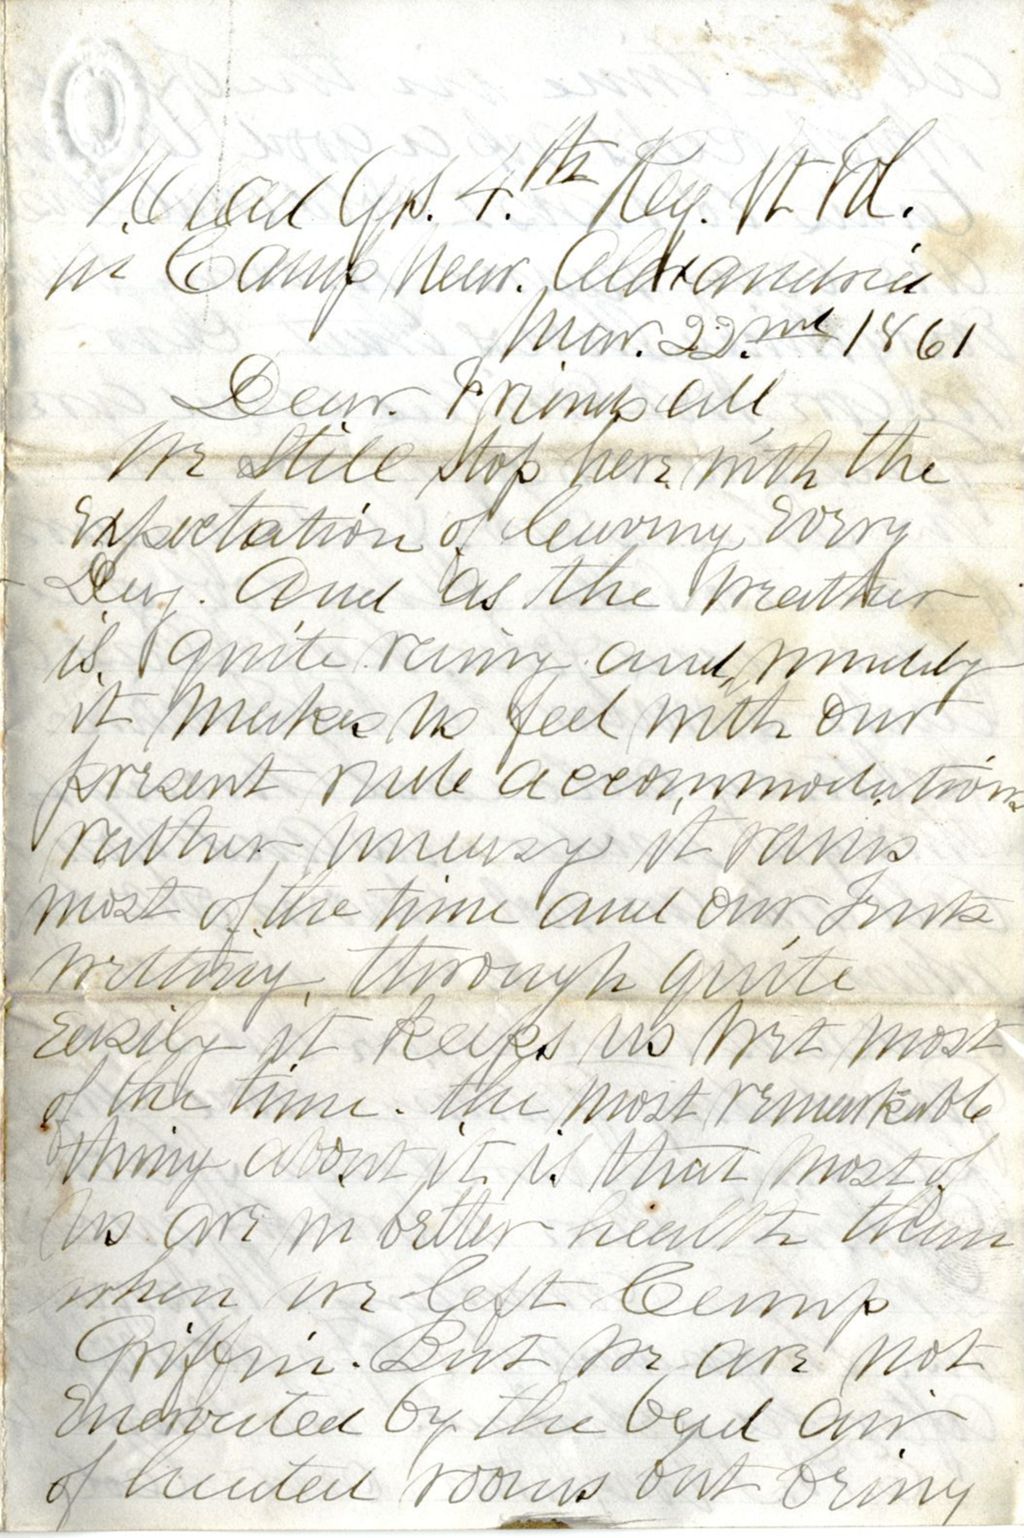 Head Qrs. 4.th Reg. Vt Vol.
in Camp Near. Alexandria
Mar. 22.nd 1861
Dear. Friends all
We still stop here with the
Expectation of leaving Every
Day. And as the weather
is. quite rainy and, muddy
it makes us feel with our
present rude accommodations
rather uneasy it rains
most of the time and our Tents
wetting, through quite
Easily it keeps us wet most
of the time. the most remarkable
thing about it is that most of
us are in better health than
when we left Camp
Griffin. But we are not
Enervated by the bad air
of heated rooms but being